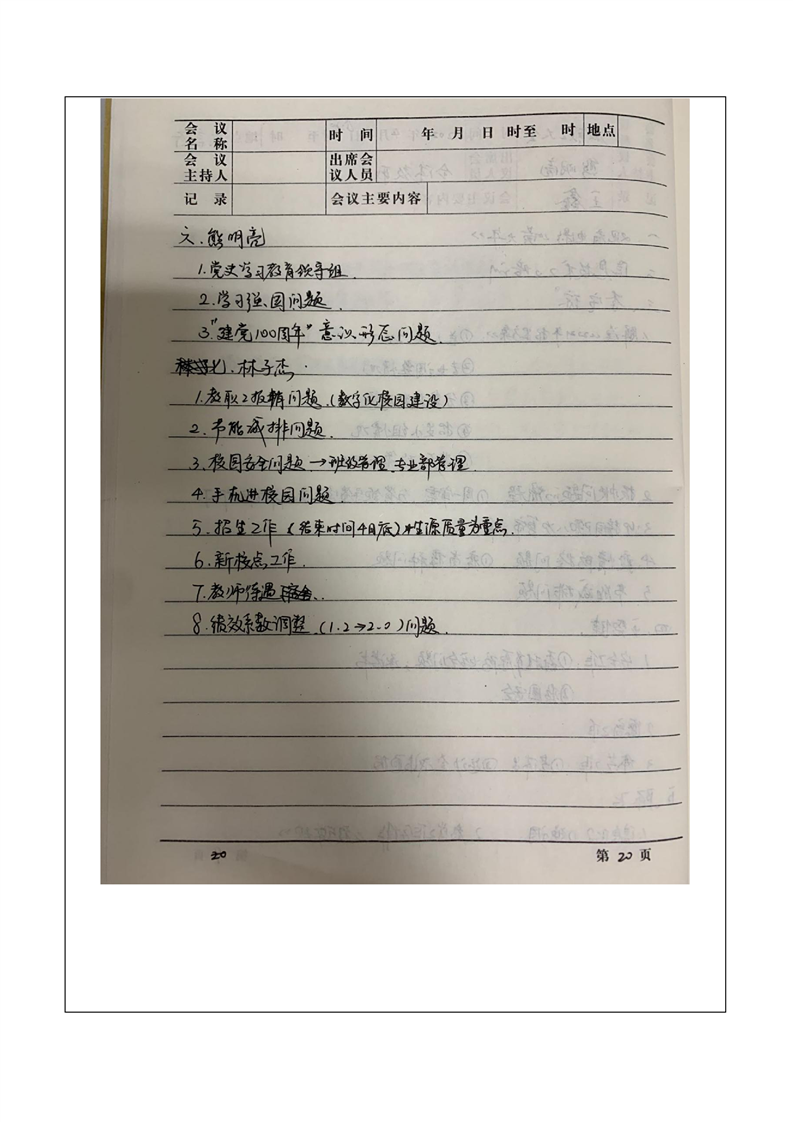 会议名称 时间 年 月 日 时至 时 地点
会议主持人 出席会议人员
记录 会议主要内容
六、熊明亮
1.党史学习教育领导组.
2.学习强国问题.
3."建党100周年"意识形态问题.
七、林子杰.
1.教职工报销问题.(数字化校园建设)
2.节能减排问题.
3.校园安全问题→班级管理.专业部管理.
4.手机进校园问题.
5.招生工作 (结束时间4月底) 生源质量为重点.
6.新校点工作.
7.教师待遇
8.绩效系数调整.(1.2→2.0)问题.
20
第 20 页